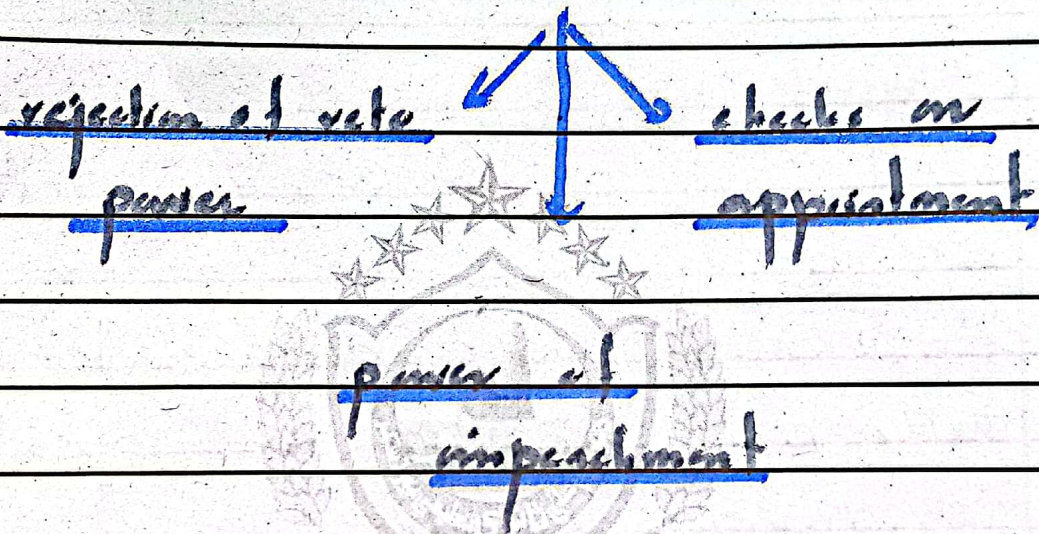 rejection of veto
power
checks on
appointment
power of
impeachment